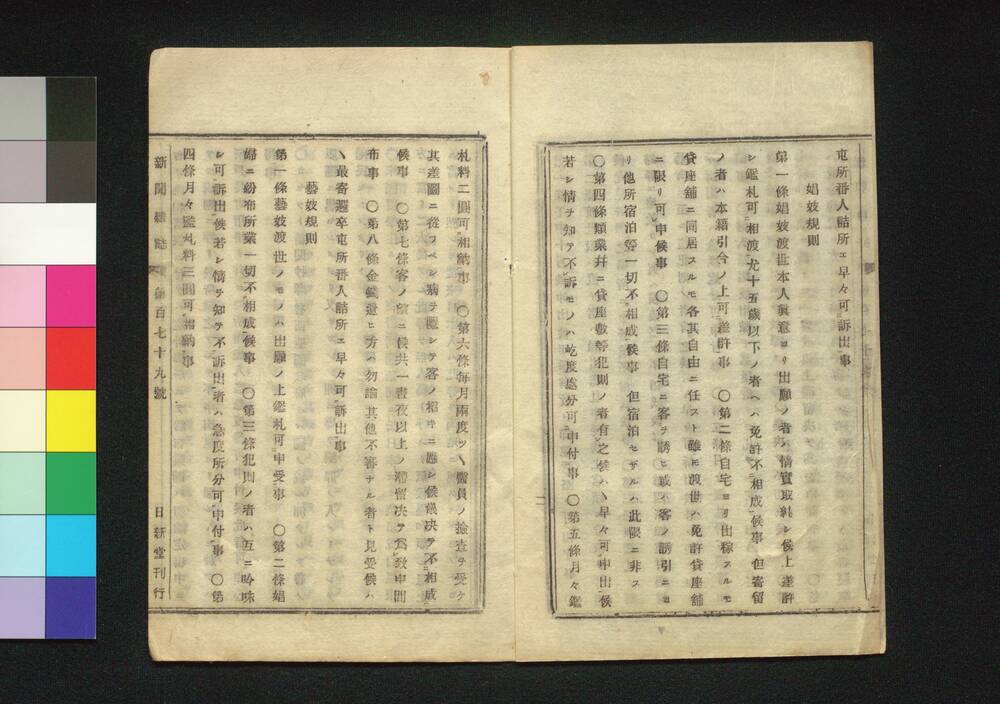 屯所番人詰所ェ早々可訴出事
娼妓規則
第一條娼妓渡世本人眞意ヨリ出願ノ者ハ情實取糺シ候上差許
シ鑑札可相渡尤十五歳以下ノ者ヘハ免許不相成候事 但寄留
ノ者ハ本籍引合ノ上可差許事 〇第二條自宅ヨリ出稼スルモ
貸座舗ニ同居スルモ各其自由ニ任スト雖𪜈渡世ハ免許貸座舗
ニ限リ可申候事 〇第三條自宅ニ客ヲ誘ヒ或ハ客ノ誘引ニヨ
リ他所宿泊等一切不相成候事 但宿泊セザルハ此限ニ非ス
〇第四條類業幷ニ貸座敷等犯則ノ者有之候ハヽ早々可申出候
若シ情ヲ知テ不訴モノハ屹度處分可申付事 〇第五條月々鑑
札料二圓可相納事 〇第六條每月兩度ツヽ醫員ノ撿査ヲ受ケ
其差圖ニ從フベシ病ヲ隱シテ客ノ招キニ應シ候儀決テ不相成
候事 〇第七條客ノ望ニ候共一晝夜以上ノ滯留决テ爲致申間
布事 〇第八條金錢遣ヒ方ハ勿論其他不審ナル者ト見受候ハ
ヽ最寄邏卒屯所番人詰所ニ早々可訴出事
藝妓規則
第一條藝妓渡世ノモノハ出願ノ上鑑札可申受事 〇第二條娼
婦ニ紛布所業一切不相成候事 〇第三條犯則ノ者ハ互ニ吟味
シ可訴出候若シ情ヲ知テ不訴出者ハ急度所分可申付事 〇第
四條月々鑑札料三圓可相納事
新聞雜誌 第百七十九號 日新堂刊行